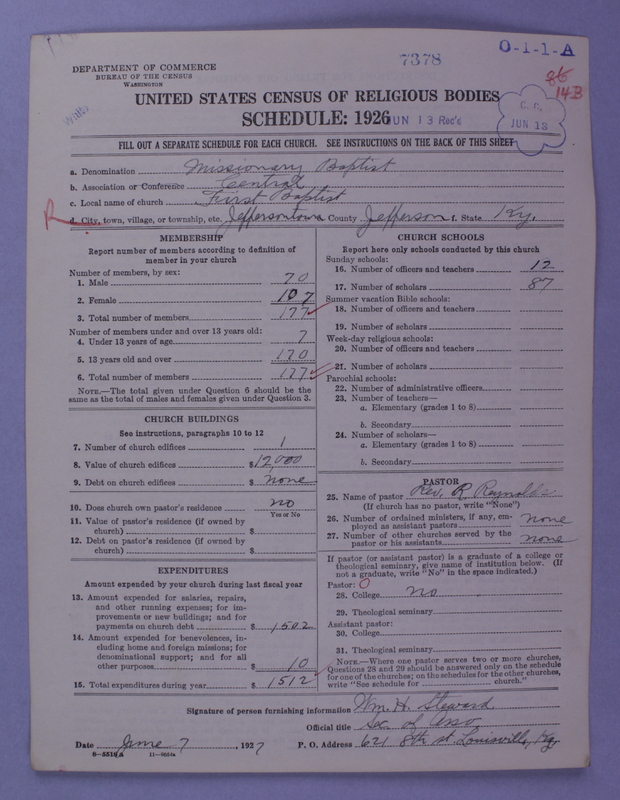 7378
O-1-1-A
DEPARTMENT OF COMMERCE
BUREAU OF THE CENSUS
WASHINGTON
86
143
C. C.
JUN 13
White
UNITED STATES CENSUS OF RELIGIOUS BODIES
SCHEDULE: 1926
JUN 13 Rec'd
FILL OUT A SEPARATE SCHEDULE FOR EACH CHURCH. SEE INSTRUCTIONS ON THE BACK OF THIS SHEET
a. Denomination Missionary Baptist
b. Association or Conference Central
c. Local name of church First Baptist
R d. City, town, village, or township, etc. Jeffersontown County Jefferson f. State Ky.
MEMBERSHIP
Report number of members according to definition of
member in your church
Number of members, by sex:
1. Male 70
2. Female 107
3. Total number of members 177
Number of members under and over 13 years old:
4. Under 13 years of age 7
5. 13 years old and over 170
6. Total number of members 177
NOTE.—The total given under Question 6 should be the
same as the total of males and females given under Question 3.
CHURCH BUILDINGS
See instructions, paragraphs 10 to 12
7. Number of church edifices 1
8. Value of church edifices $12,000
9. Debt on church edifices $ none
10. Does church own pastor's residence no
Yes or No
11. Value of pastor's residence (if owned by
church) $
12. Debt on pastor's residence (if owned by
church) $
EXPENDITURES
Amount expended by your church during last fiscal year
13. Amount expended for salaries, repairs,
and other running expenses; for im-
provements or new buildings; and for
payments on church debt $ 1502
14. Amount expended for benevolences, in-
cluding home and foreign missions; for
denominational support; and for all
other purposes $ 10
15. Total expenditures during year $ 1512
CHURCH SCHOOLS
Report here only schools conducted by this church
Sunday schools:
16. Number of officers and teachers 12
17. Number of scholars 87
Summer vacation Bible schools:
18. Number of officers and teachers
19. Number of scholars
Week-day religious schools:
20. Number of officers and teachers
21. Number of scholars
Parochial schools:
22. Number of administrative officers
23. Number of teachers—
a. Elementary (grades 1 to 8)
b. Secondary
24. Number of scholars—
a. Elementary (grades 1 to 8)
b. Secondary
PASTOR
25. Name of pastor Rev. R. Reynolds
(If church has no pastor, write "None")
26. Number of ordained ministers, if any, em-
ployed as assistant pastors none
27. Number of other churches served by the
pastor or his assistants none
If pastor (or assistant pastor) is a graduate of a college or
theological seminary, give name of institution below. (If
not a graduate, write "No" in the space indicated.)
Pastor:
28. College no
29. Theological seminary
Assistant pastor:
30. College
31. Theological seminary
NOTE.—Where one pastor serves two or more churches,
Questions 28 and 29 should be answered only on the schedule
for one of the churches; on the schedules for the other churches,
write "See schedule for church."
Signature of person furnishing information Wm. H. Steward
Official title Sec. of Asso.
Date June 7, 1927 P. O. Address 621 8th st. Louisville, Ky.
8-5518a 11-9054a